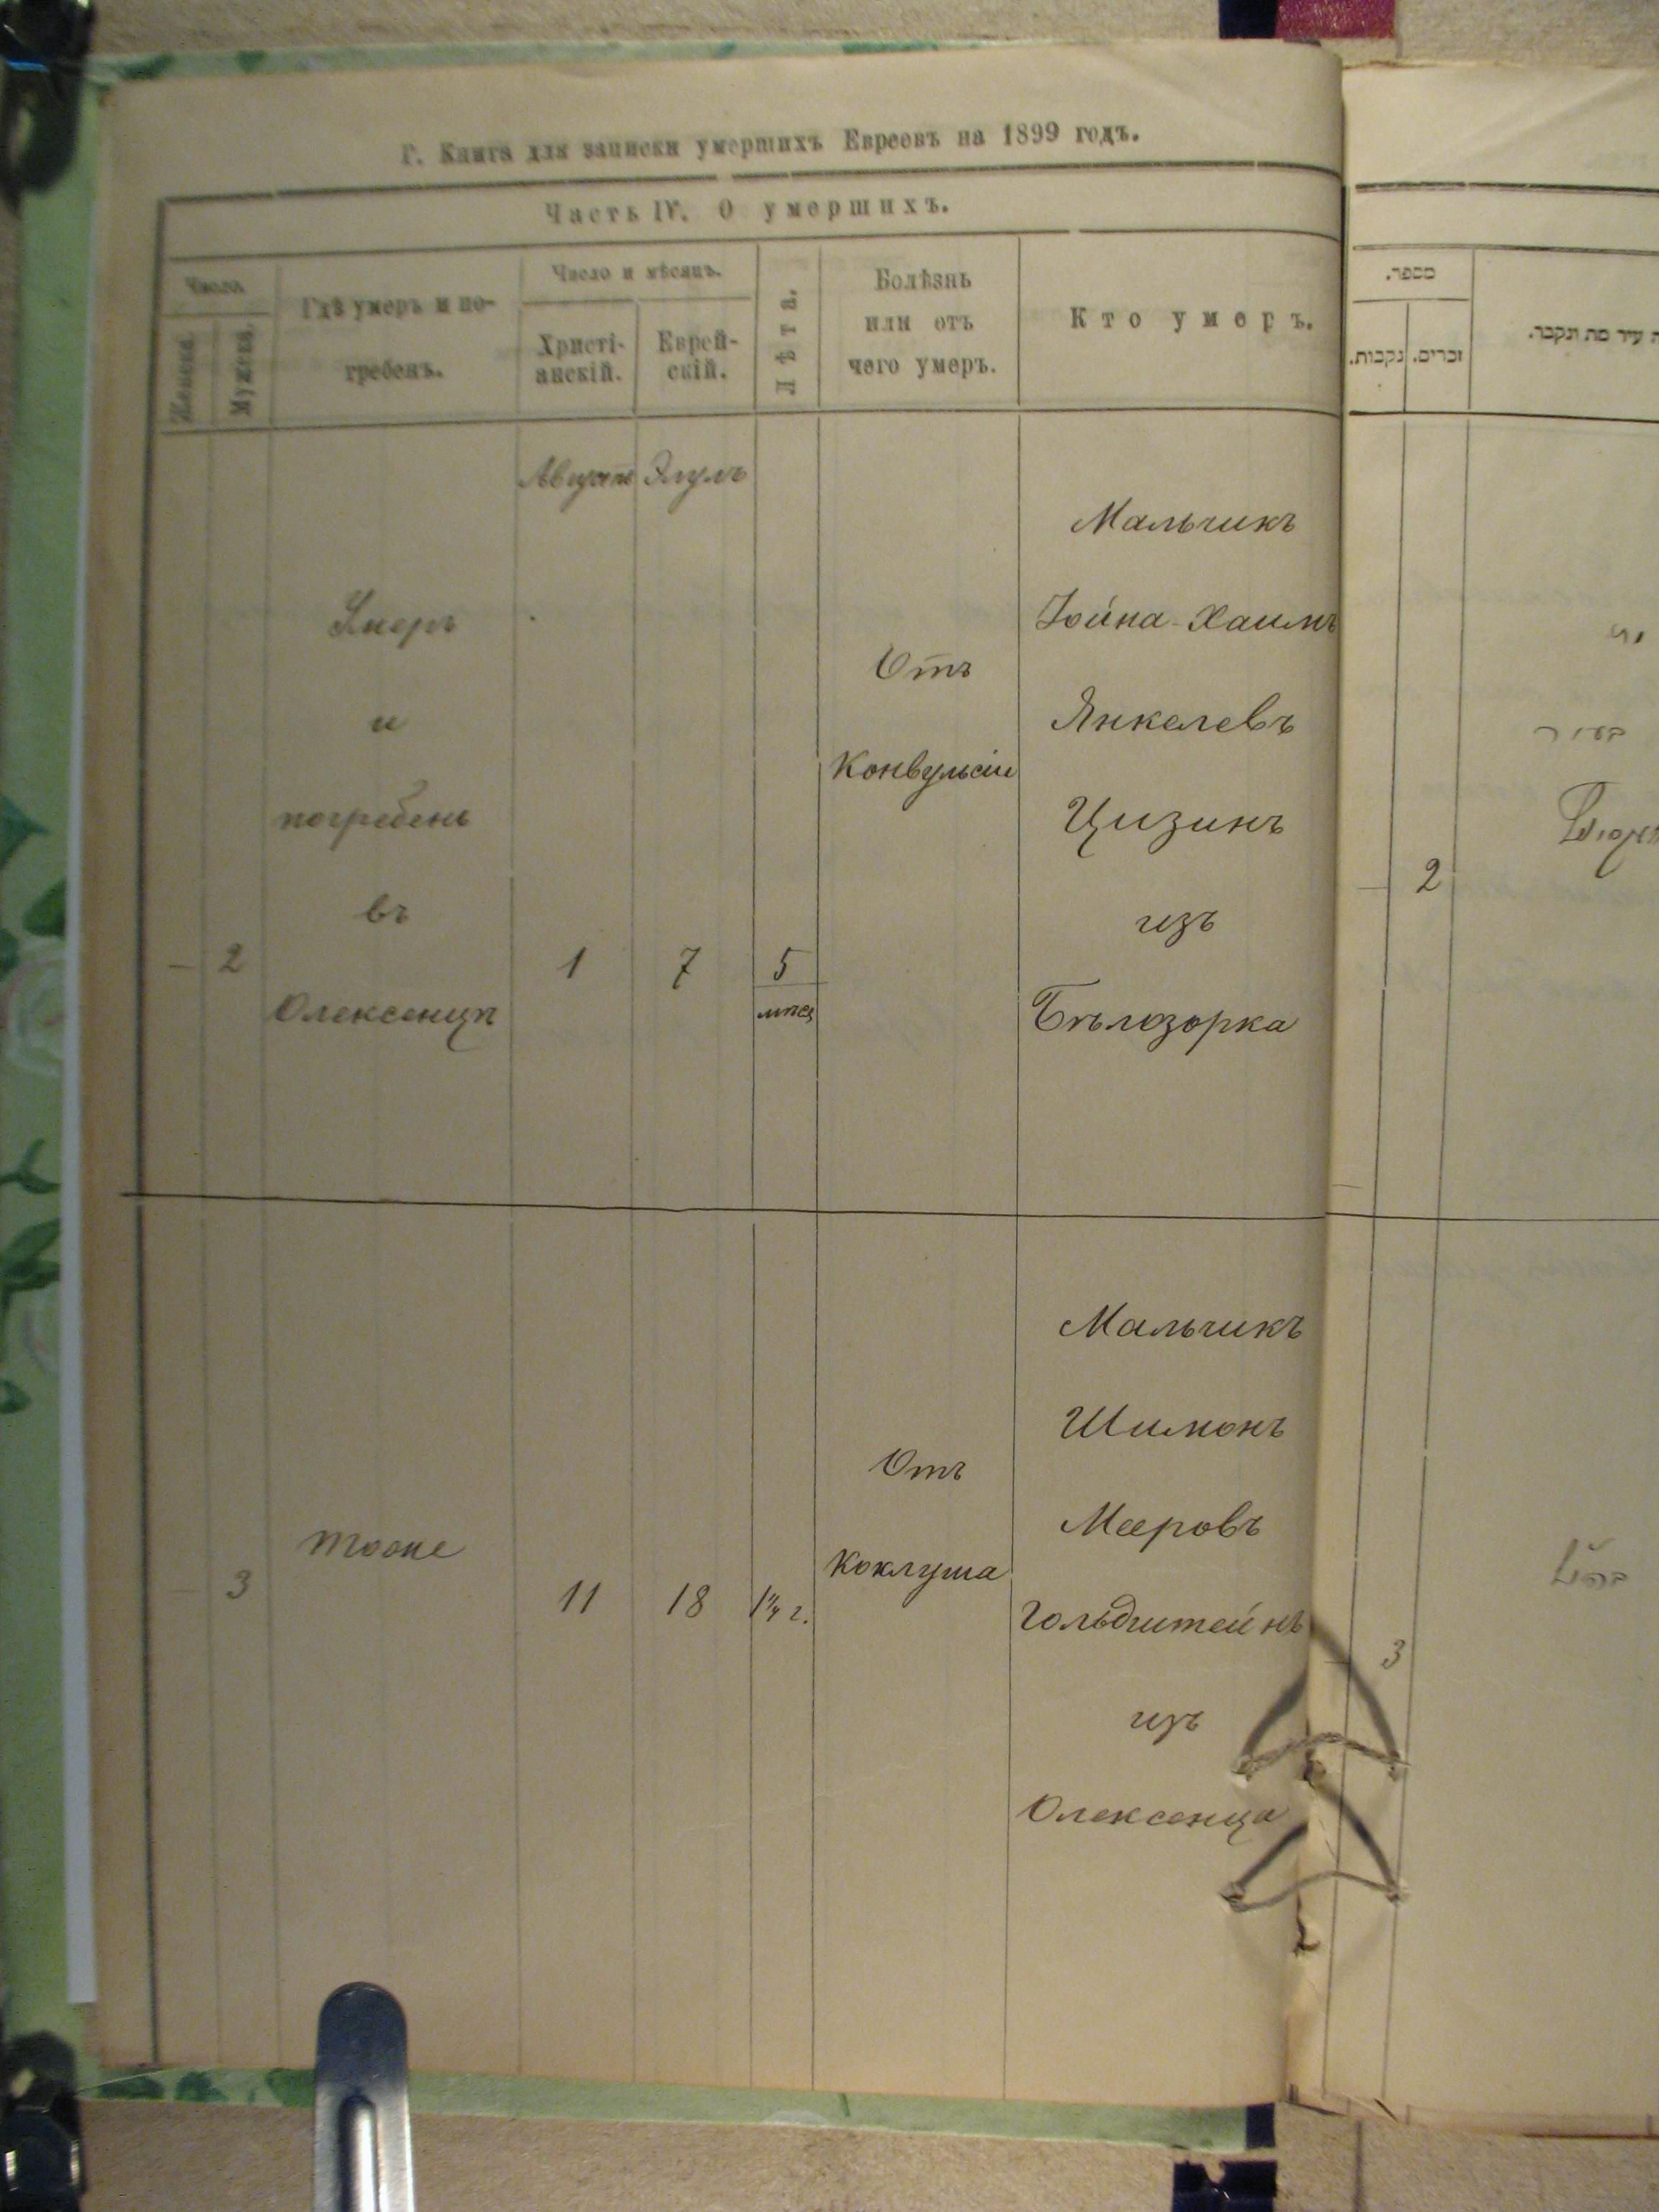 Г. Книга для записки умершихъ Евреевъ на 1899 годъ.
Часть IV. О умершихъ.
Число.
Женска.
Мужеска.
Гдѣ умеръ и по-
гребенъ.
Число и мѣсяцъ.
Христі-
анскій.
Еврей-
скій.
Лѣта.
Болѣзнь
или отъ
чего умеръ.
Кто умеръ.
Августъ
Элулъ
—
2
Умеръ
и
погребенъ
въ
Олексенцѣ
1
7
5
мѣс
Отъ
Конвульсіи
Мальчикъ
Іойна-Хаимъ
Янкелевъ
Цизинъ
изъ
Бѣлозорка
—
3
тоже
11
18
1¼ г.
Отъ
Коклуша
Мальчикъ
Шимонъ
Мееровъ
Гольдштейнъ
изъ
Олексенца
מספר.
נקבות.
זכרים.
עיר מת ונקבר.
—
2
3